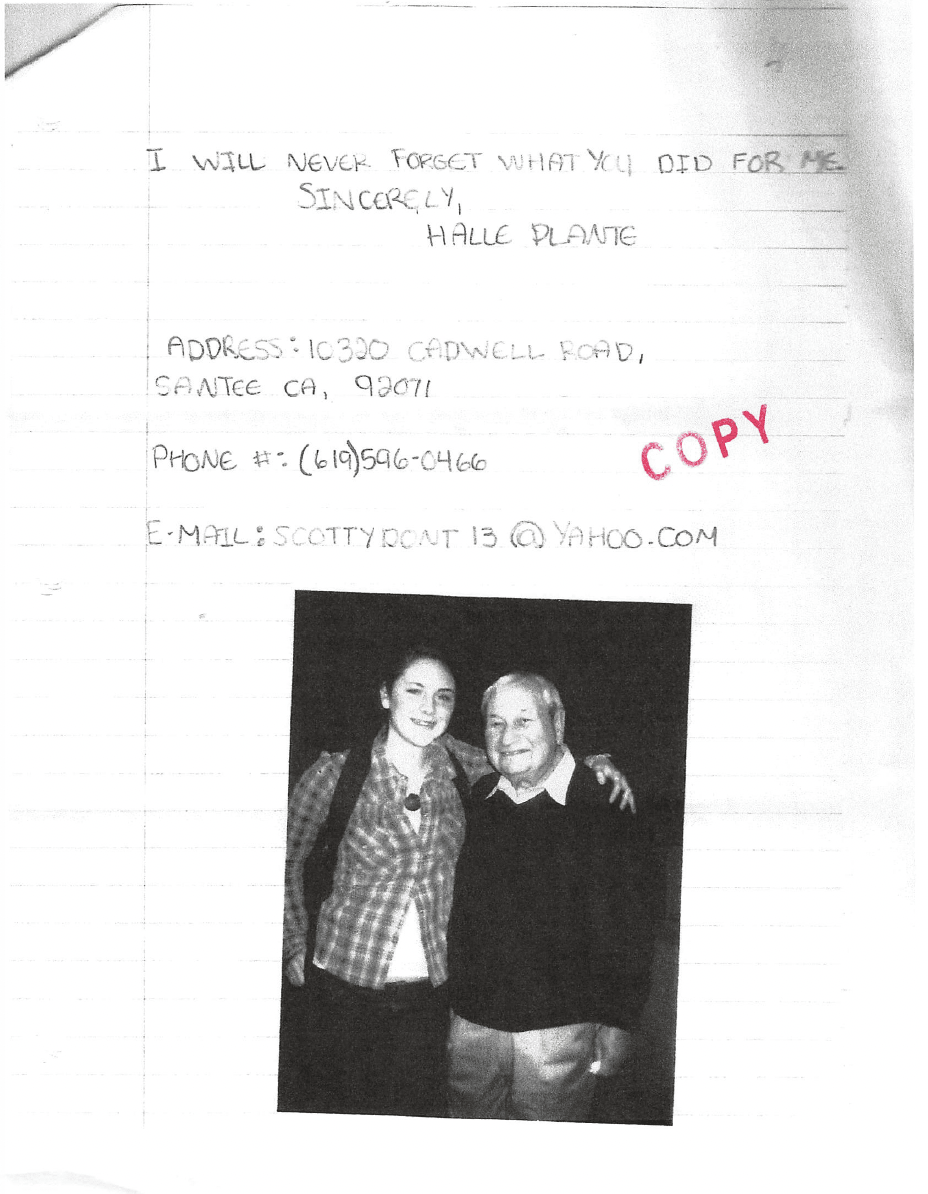 I WILL NEVER FORGET WHAT YOU DID FOR ME.
SINCERELY,
HALLE PLANTE
ADDRESS: 10320 CADWELL ROAD,
SANTEE CA, 92071
COPY
PHONE #: (619)596-0466
E-MAIL: SCOTTYDONT13@YAHOO.COM